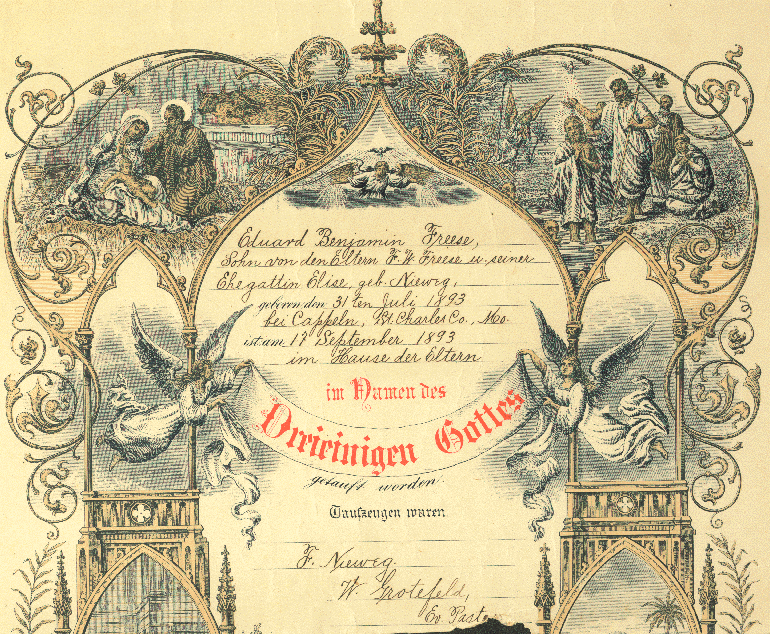 Eduard Benjamin Freese,
Sohn von den Eltern F. W. Freese u. seiner
Ehegattin Elise, geb. Nieweg,
geboren den 31ten Juli 1893
bei Cappeln, St. Charles Co., Mo.
ist am 17 September 1893
im Hause der Eltern
im Namen des
Dreieinigen Gottes
getauft worden.
Taufzeugen waren
F. Nieweg.
W. Grotefeld,
Ev. Pastor